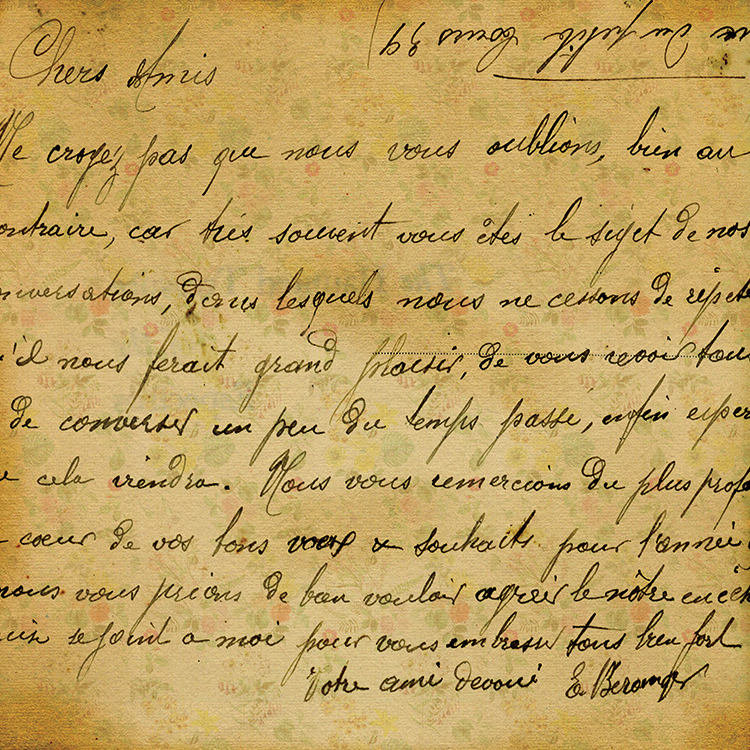 Chers Amis
Ne croyez pas que nous vous oublions, bien au
contraire, car très souvent vous êtes le sujet de nos
conversations, dans lesquels nous ne cessons de répéter
qu'il nous ferait grand plaisir, de vous revoir tous
de converser un peu du temps passé, enfin
cela viendra. Nous vous remercions du plus
cœur de vos bons vœux & souhaits pour l'année
nous vous prions de bien vouloir agréer le nôtre en
se joint a moi pour vous embrasser tous bien fort
Votre ami devoué E. Beranger
du petit 39